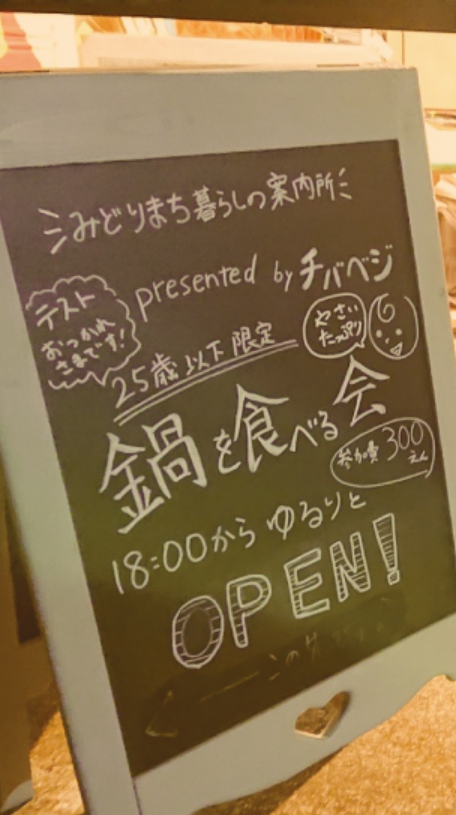 みどりまち暮らしの案内所
presented by チバベジ
テスト
おつかれ
さまです!
やさい
たっぷり
25歳以下限定
鍋を食べる会
参加費300
えん
18:00から ゆるりと
OPEN!